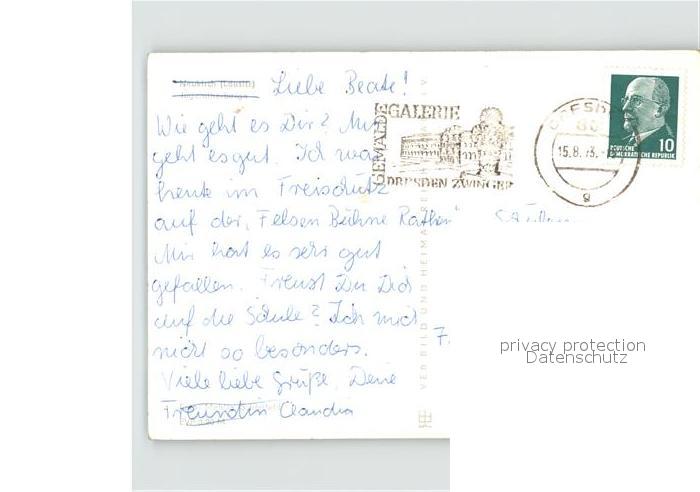 Neukirch (Lausitz)
Liebe Beate!
Wie geht es Dir? Mir
geht es gut. Ich war
heute im Freischütz
auf der „Felsen Bühne Rathen"
Mir hat es sehr gut
gefallen. Freust Du Dich
auf die Schule? Ich mich
nicht so besonders.
Viele liebe Grüße, Deine
Freundin Claudia
GEMÄLDEGALERIE
DRESDEN ZWINGER
DRESDEN
15.8.73.
g
10
DEUTSCHE
DEMOKRATISCHE REPUBLIK
VEB BILD UND HEIMAT RE
7.
privacy protection
Datenschutz